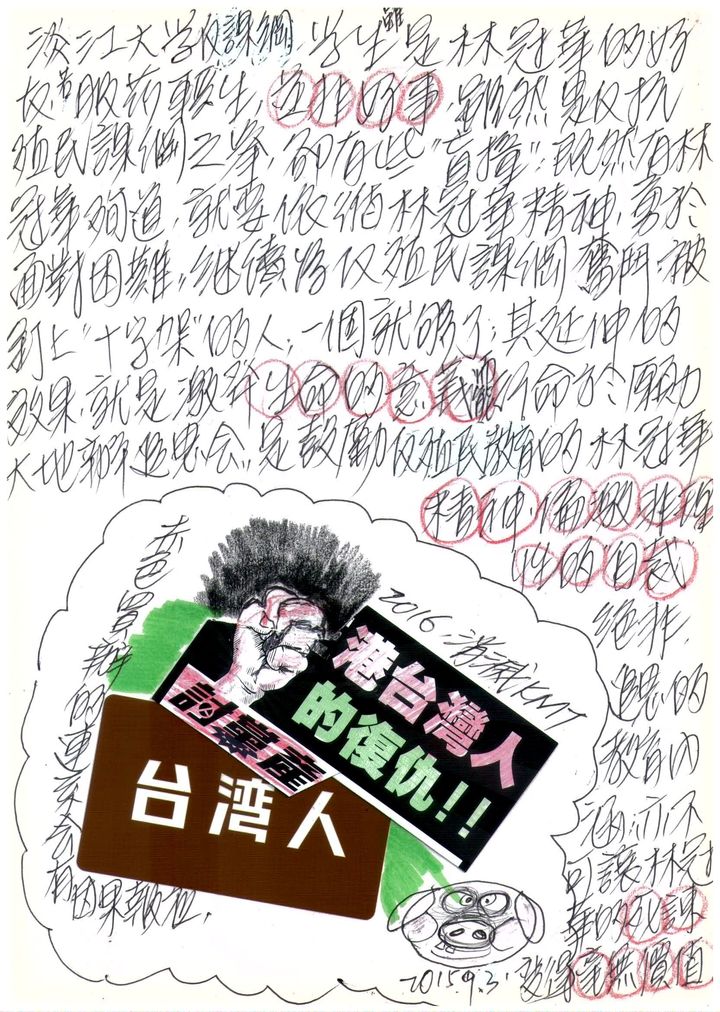 淡江大学反課綱,学生雖是林冠華的好
友,服药輕生,並非好事,雖然是反抗
殖民課綱之举,卻有些"盲撞",既然有林
冠華殉道,就要依循林冠華精神,勇於
面對困難,继續為反殖民課綱奮鬥,被
釘上"十字架"的人,一個就够了,其延伸的
效果,就是激發生命的意義
大地 追思会,是鼓勵反殖民教育的林冠華
精神,偏激非理
性的自裁
絕非
追思的
教育内
涵,亦不
可讓林冠
華的死諫
變得毫無價值
2016.消滅KMT
港台灣人
的復仇!!
討黨產
台湾人
的連
会有因果報应.
2015.9.3.